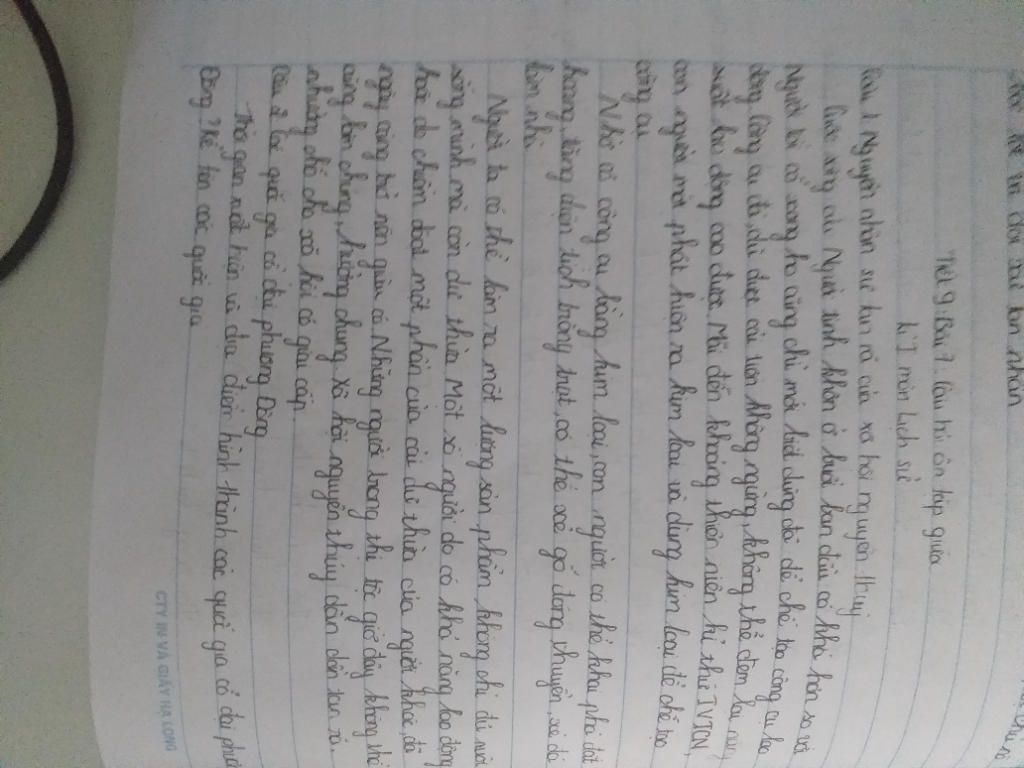 Tiết 9. Bài 7. Câu hỏi ôn tập giữa
kì I môn Lịch sử
Câu 1 Nguyên nhân sự tan rã của xã hội nguyên thuỷ
Cuộc sống của Người tinh khôn ở buổi ban đầu có khá hơn so với
Người tối cổ song họ cũng chỉ mới biết dùng đá để chế tạo công cụ lao
động Công cụ đá, dù được cải tiến không ngừng, không thể đem lại năng
suất lao động cao được Mãi đến khoảng thiên niên kỉ thứ IV TCN,
con người mới phát hiện ra kim loại và dùng kim loại để chế tạo
công cụ
Nhờ có công cụ bằng kim loại, con người có thể khai phá đất
hoang, tăng diện tích trồng trọt, có thể xẻ gỗ đóng thuyền, xẻ đá
làm nhà
Người ta có thể làm ra một lượng sản phẩm không chỉ đủ nuôi
sống mình mà còn dư thừa Một số người do có khả năng lao động
hoặc do chiếm đoạt một phần của cải dư thừa của người khác, đã
ngày càng trở nên giàu có Những người trong thị tộc giờ đây không thể
cùng làm chung, hưởng chung Xã hội nguyên thủy dần dần tan rã,
nhường chỗ cho xã hội có giai cấp
Câu 2 Các quốc gia cổ đại phương Đông
Thời gian xuất hiện và địa điểm hình thành các quốc gia cổ đại phươ
Đông? Kể tên các quốc gia
CTY IN VÀ GIẤY HẠ LONG